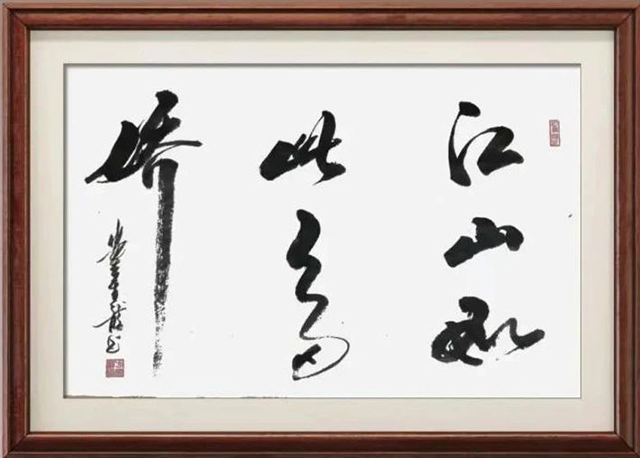 江山如
此多
娇